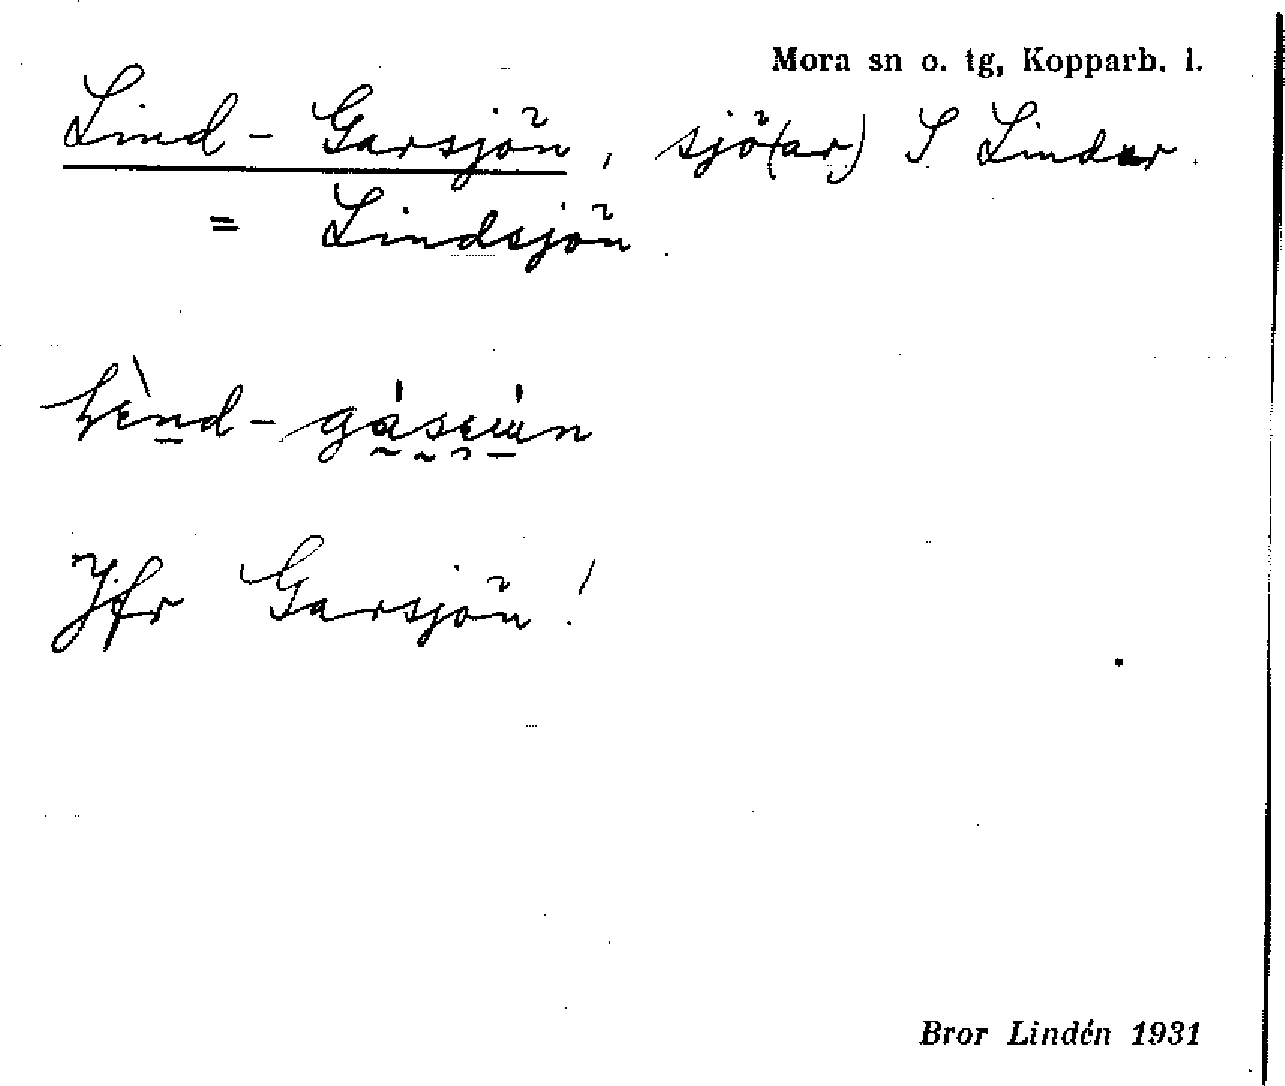 Mora sn o. tg, Kopparb. l.
Lind-Garsjön, sjö(ar) S Lindor.
= Lindsjön.
Jfr Garsjön!
Bror Lindén 1931